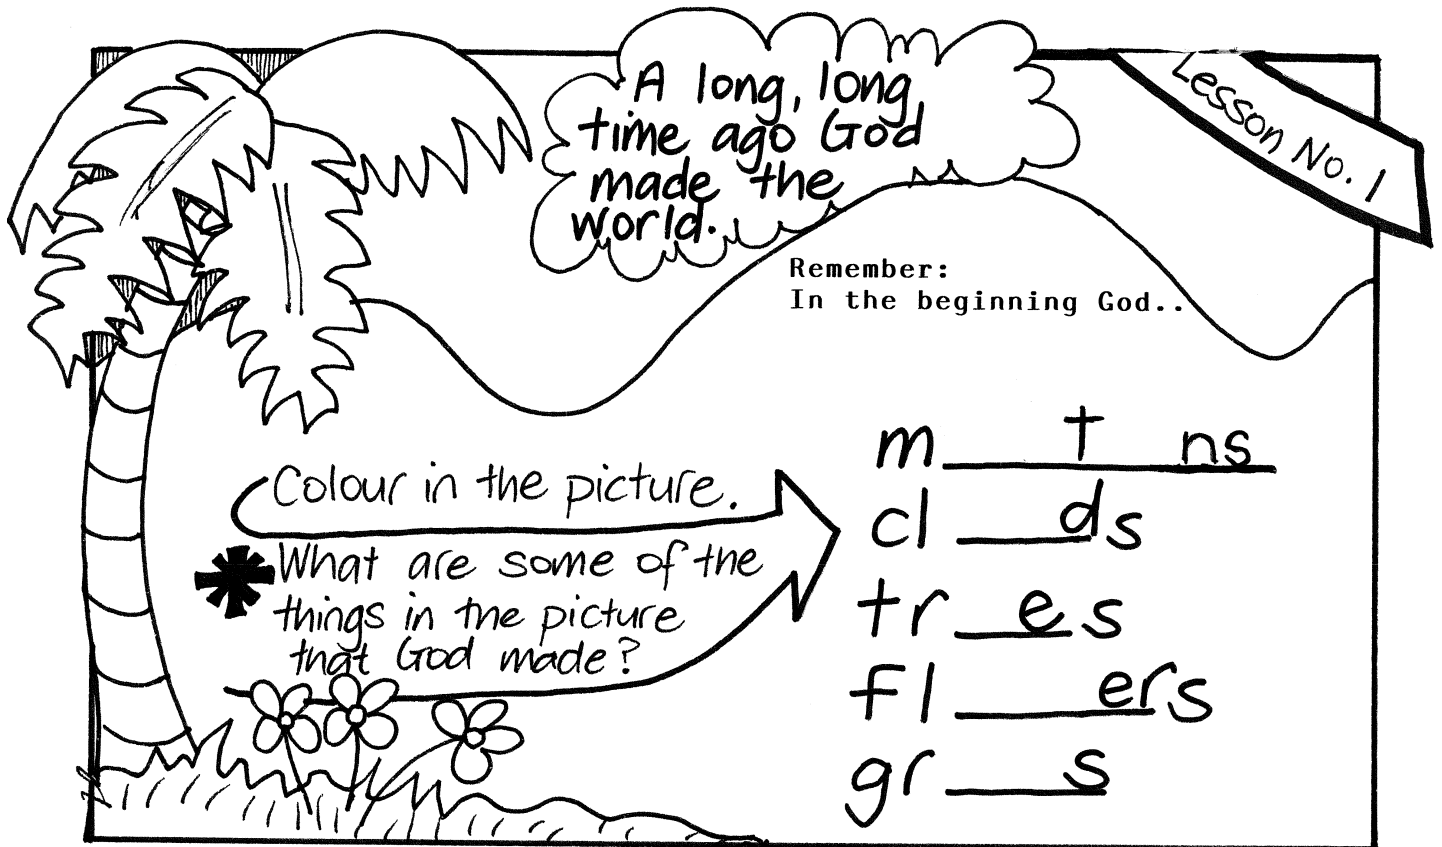 A long, long
time ago God
made the
world.
Lesson No. 1
Remember:
In the beginning God..
Colour in the picture.
What are some of the
things in the picture
that God made?
m ____ t ____ ns
cl ____ ds
tr ____ e s
fl ____ ers
gr ____ s